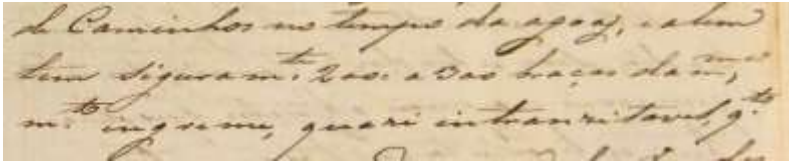 de Caminhos no tempo da agoas, e alem
tem siguram.te 200. a 300 braças da m.ma,
m.to ingreme, quazi intranzitavel, q.to